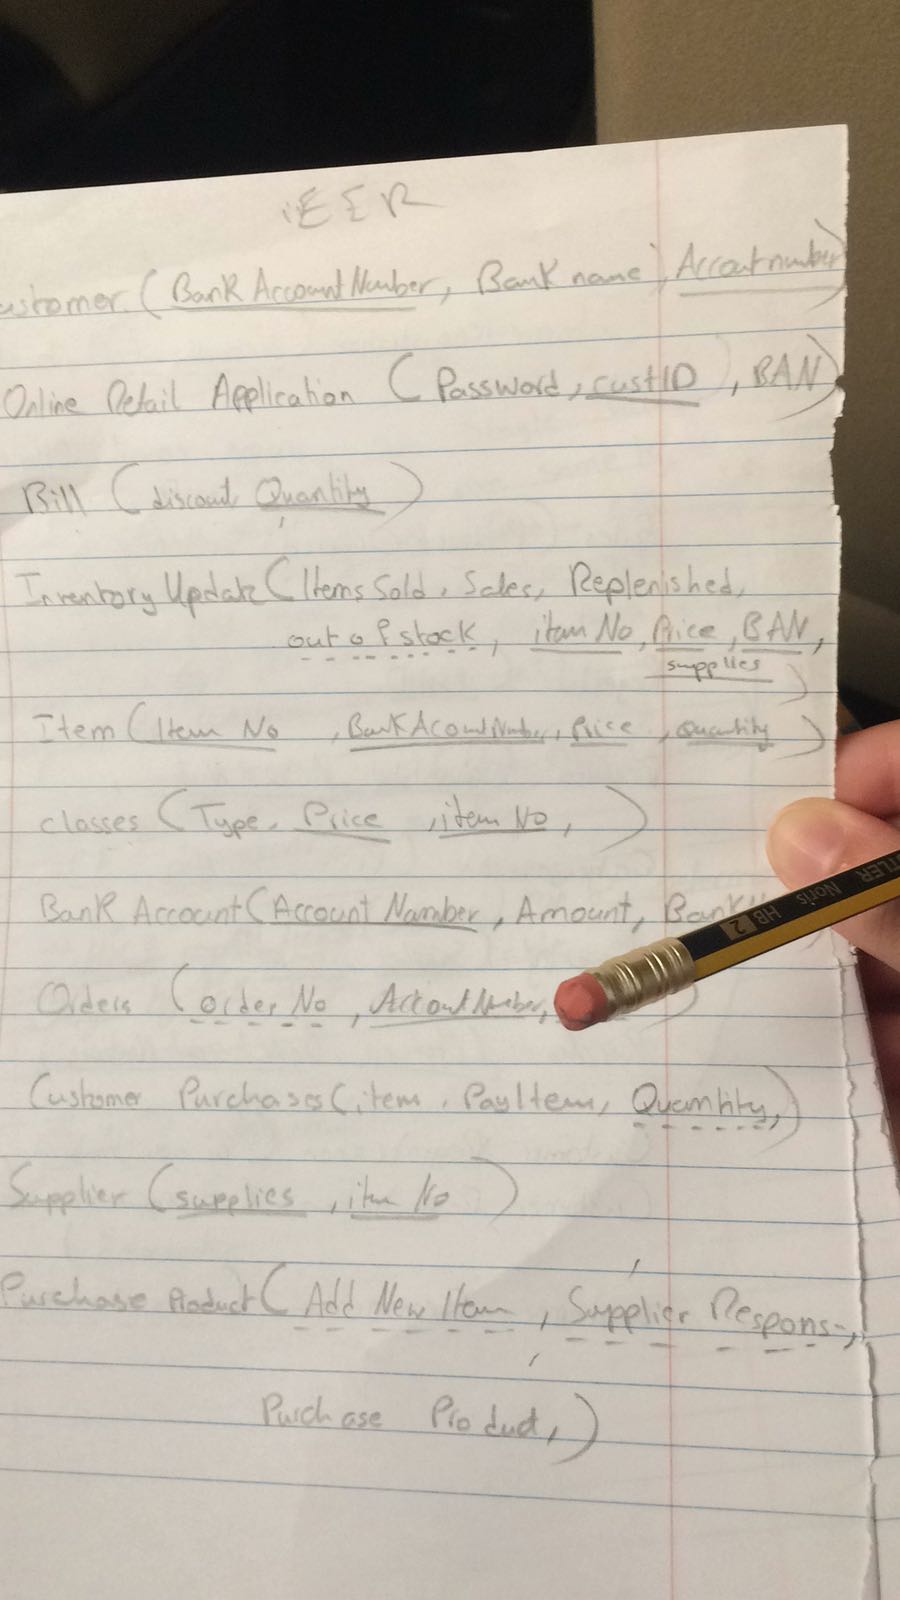 EER
ustomer (Bank Account Number, Bank name, Account number)
Online Retail Application (Password, custID), BAN)
Bill (discount, Quantity)
Inventory Update (Items Sold, Sales, Replenished,
out of stock, item No, Price, BAN,
supplies)
Item (Item No, Bank Acount Number, Price, Quantity)
classes (Type, Price, item No,)
Bank Account (Account Number, Amount, Bank
Orders (order No, Account Number,)
Customer Purchases (item, PayItem, Quantity,)
Supplier (supplies, item No)
Purchase Product (Add New Item, Supplier Respons-,
Purchase Product,)
TLER Noris HB 2